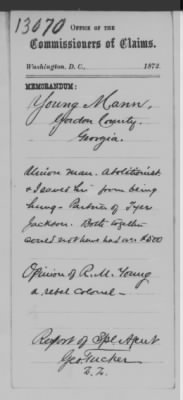 13070
OFFICE OF THE
Commissioners of Claims.
Washington, D. C., 1872.
MEMORANDUM:
Young Mann,
Gordon County.
Georgia.
Union man. Abolitionist
& I saved him from being
hung - Partner of Tyer
Jackson. Both together
could not have had over $500
Opinion of R. M. Young
a rebel colonel -
Report of Spl Agent
Geo. Tucker